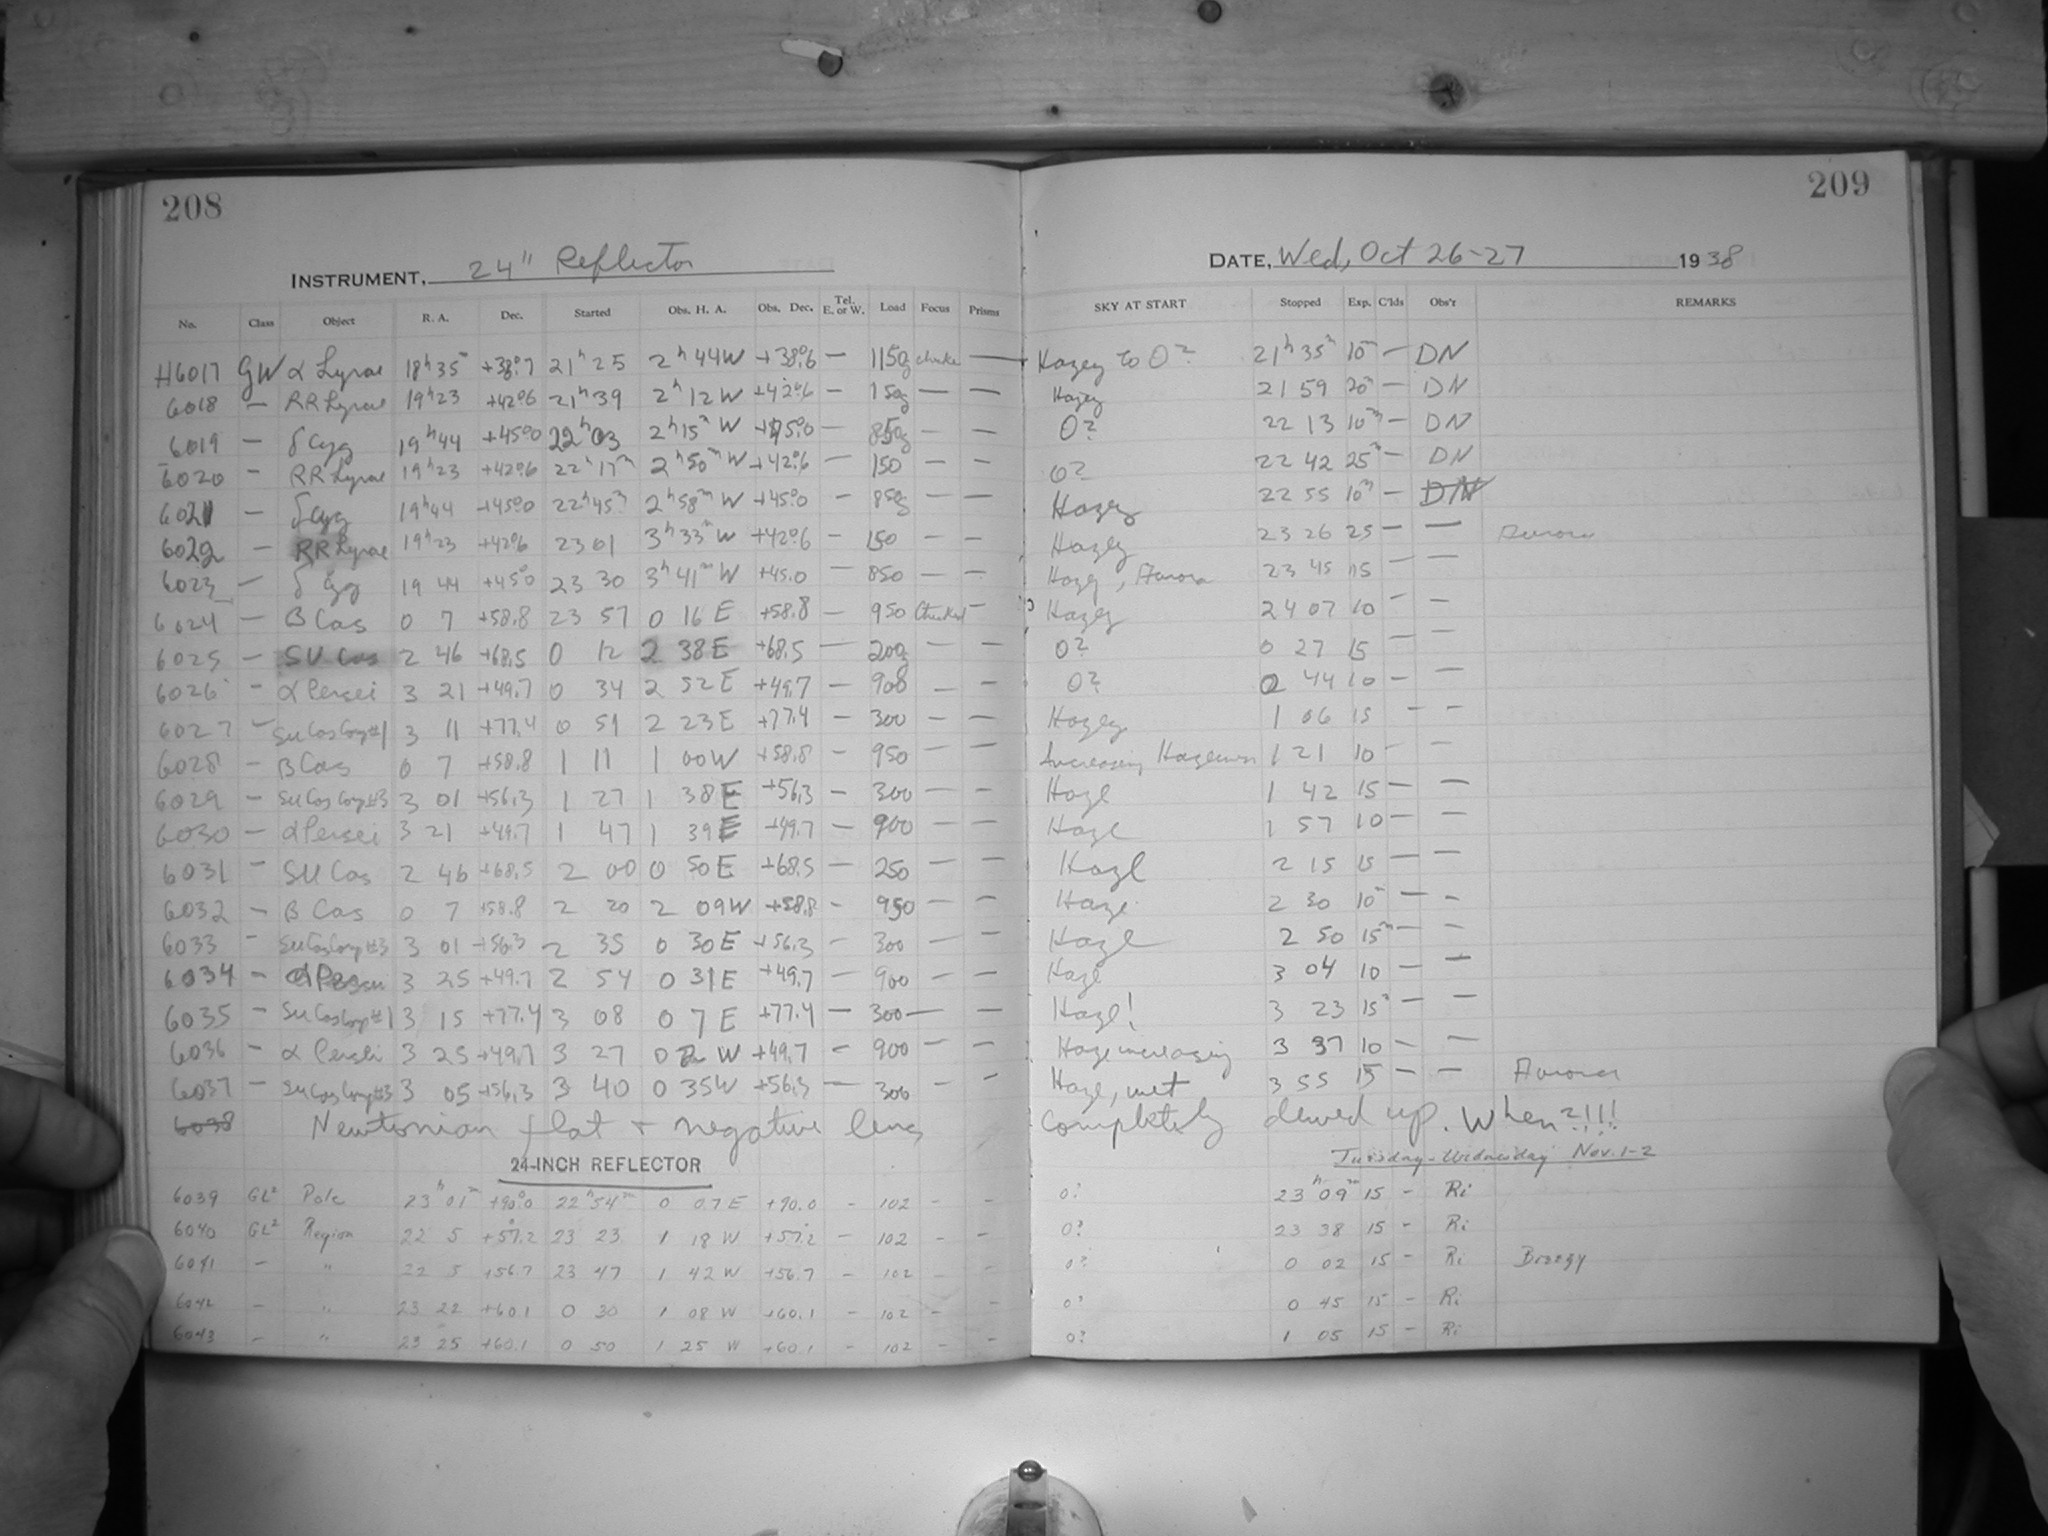 208
209
INSTRUMENT, 24" Reflector
DATE, Wed, Oct 26-27 1938
No. Class Object R. A. Dec. Started Obs. H. A. Obs. Dec. Tel. E. or W. Load Focus Prisms SKY AT START Stopped Exp. C'lds Obs'r REMARKS
H6017 GW α Lyrae 18h35m +38°.7 21h25 2h44W +38°.6 — 115g — Hazey to 0? 21h35m 10m — DN
6018 — RR Lyrae 19h23 +42°.6 21h39 2h12W +42°.6 — 150g — — Hazey 21 59 20m — DN
6019 — δ Cyg 19h44 +45°.0 22h03 2h15m W +45°.0 — 850g — — 0? 22 13 10m — DN
6020 — RR Lyrae 19h23 +42°.6 22h17m 2h50m W +42°.6 — 150 — — 0? 22 42 25m — DN
6021 — δ Cyg 19h44 +45°.0 22h45m 2h58m W +45°.0 — 850 — — Hazey 22 55 10m — DN
6022 — RR Lyrae 19h23 +42°.6 23 01 3h33m W +42°.6 — 150 — — Hazey 23 26 25 — — Aurora
6023 — δ Cyg 19 44 +45°.0 23 30 3h41m W +45.0 — 850 — — Hazey, Aurora 23 45 15 — —
6024 — β Cas 0 7 +58.8 23 57 0 16 E +58.8 — 950 Checked — Hazey 24 07 10 — —
6025 — SU Cas 2 46 +68.5 0 12 2 38E +68.5 — 200g — — 0? 0 27 15 — —
6026 — α Persei 3 21 +49.7 0 34 2 52E +49.7 — 900 — — 0? 0 44 10 — —
6027 — SU Cas Comp #1 3 11 +77.4 0 51 2 23E +77.4 — 300 — — Hazey 1 06 15 — —
6028 — β Cas 0 7 +58.8 1 11 1 00W +58.8 — 950 — — Increasing Haziness 1 21 10 — —
6029 — SU Cas Comp #3 3 01 +56.3 1 27 1 38E +56.3 — 300 — — Haze 1 42 15 — —
6030 — α Persei 3 21 +49.7 1 47 1 39E +49.7 — 900 — — Haze 1 57 10 — —
6031 — SU Cas 2 46 +68.5 2 00 0 50E +68.5 — 250 — — Haze 2 15 15 — —
6032 — β Cas 0 7 +58.8 2 20 2 09W +58.8 — 950 — — Haze 2 30 10m — —
6033 — SU Cas Comp #3 3 01 +56.3 2 35 0 30E +56.3 — 300 — — Haze 2 50 15m — —
6034 — α Persei 3 25 +49.7 2 54 0 31E +49.7 — 900 — — Haze 3 04 10 — —
6035 — SU Cas Comp #1 3 15 +77.4 3 08 0 7 E +77.4 — 300 — — Haze! 3 23 15m — —
6036 — α Persei 3 25 +49.7 3 27 0 2 W +49.7 — 900 — — Haze increasing 3 37 10 — —
6037 — SU Cas Comp #3 3 05 +56.3 3 40 0 35W +56.3 — 300 — — Haze, wet 3 55 15 — — Aurora
6038 Newtonian flat + negative lens completely dewed up. When?!!!
24-INCH REFLECTOR Tuesday-Wednesday Nov. 1-2
6039 GL² Pole 23h01m +90°.0 22h54m 0 07E +90.0 - 102 - - 0? 23h09m 15 - Ri
6040 GL² Region 22 5 +57.2 23 23 1 18 W +57.2 - 102 - - 0? 23 38 15 - Ri
6041 — " 22 5 +56.7 23 47 1 42 W +56.7 - 102 - - 0? 0 02 15 - Ri Breezy
6042 — " 23 22 +60.1 0 30 1 08 W +60.1 - 102 - - 0? 0 45 15 - Ri
6043 — " 23 25 +60.1 0 50 1 25 W +60.1 - 102 - - 0? 1 05 15 - Ri